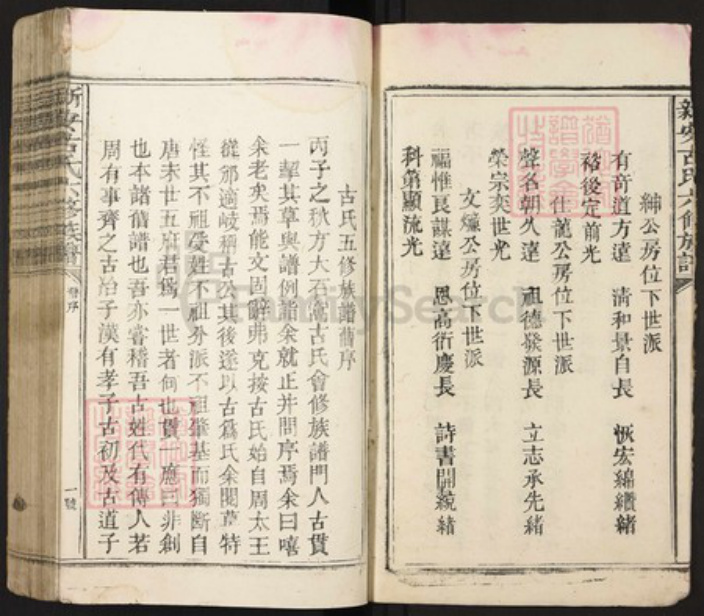 新安古氏六修族譜
紳公房位下世派
有奇道方達 清和景自長 恢宏綿纘緒
裕後定前光
仕龍公房位下世派
聲名朝久達 祖德發源長 立志承先緒
榮宗奕世光
文煉公房位下世派
福惟良謀達 恩高衍慶長 詩書開統緒
科第顯流光
古氏五修族譜舊序
丙子之秋方大石 古氏會修族譜門人古貫
一挈其草與譜例謁余就正并問序焉余曰嘻
余老矣焉能文固辭弗克按古氏始自周太王
從邠適岐稱古公其後遂以古爲氏余閱草特
怪其不祖受姓不祖分派不祖肇基而獨斷自
唐末世五府君爲一世者何也貫一應曰非創
也本諸舊譜也吾亦嘗稽吾古姓代有傳人若
周有事齊之古冶子漢有孝子古初及古道子
新安古氏六修族譜
舊序
一號
FamilySearch